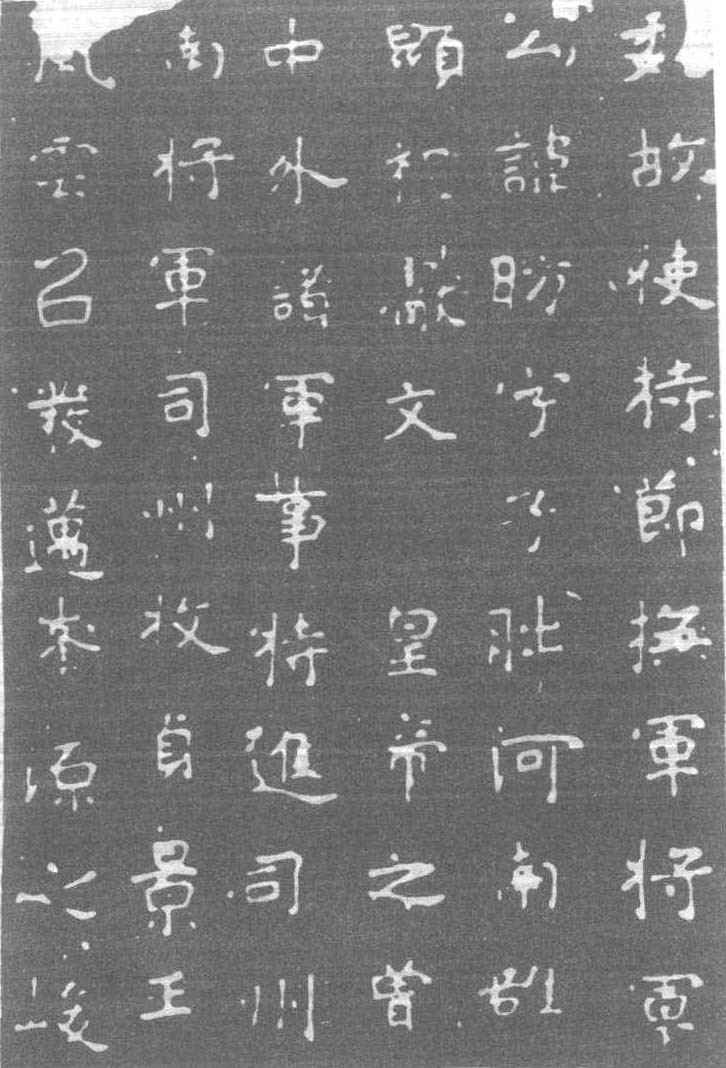 魏故使持節撫軍將軍
公諱昉字子朏河南雒
顯祖獻文　皇帝之曾
中外諸軍事特進司州
南將軍司州牧貞景王
風雲召發邁本源之峻